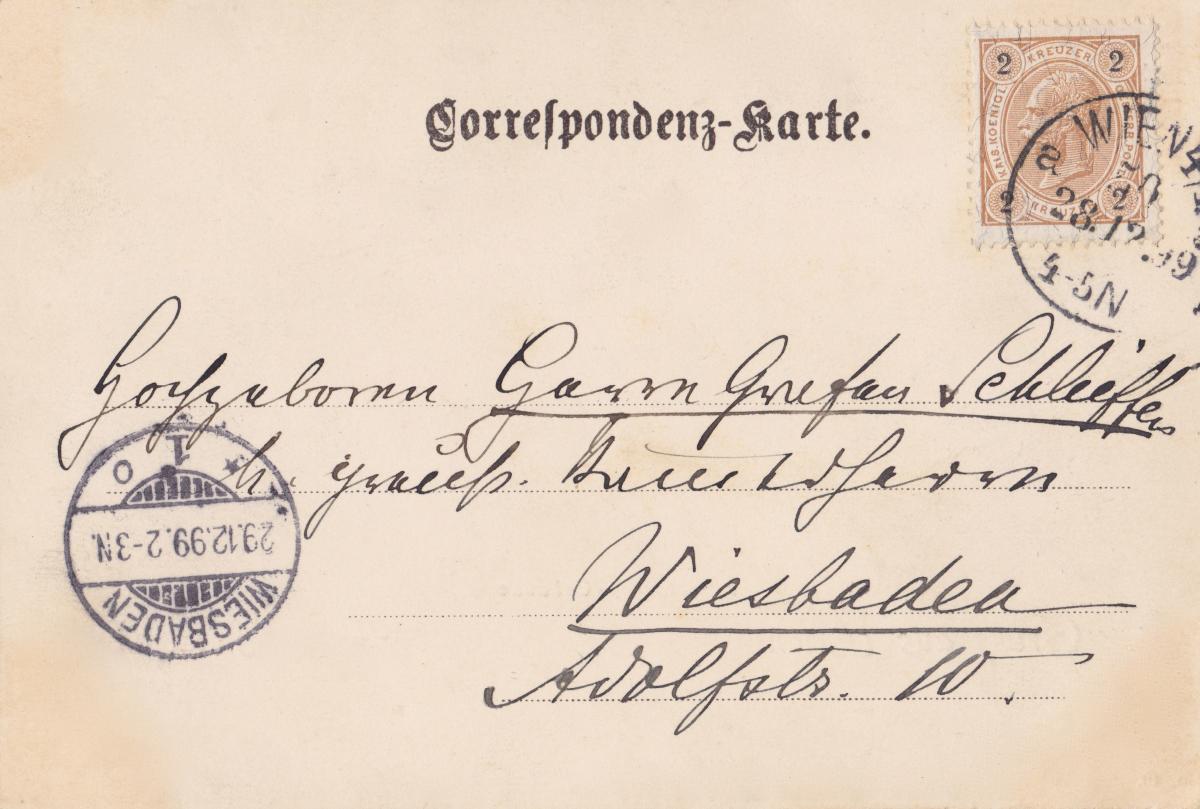 Correspondenz-Karte.
2 KREUZER 2
KAIS. KOENIGL.
2 KREUZER 2
WIEN 4/1
28.12.99
4-5N
Hochgeboren Herrn Grafen Schlieffen
k. preuß. Kammerherrn
Wiesbaden
Adolfstr. 10.
WIESBADEN
29.12.99.2-3N.
1 o